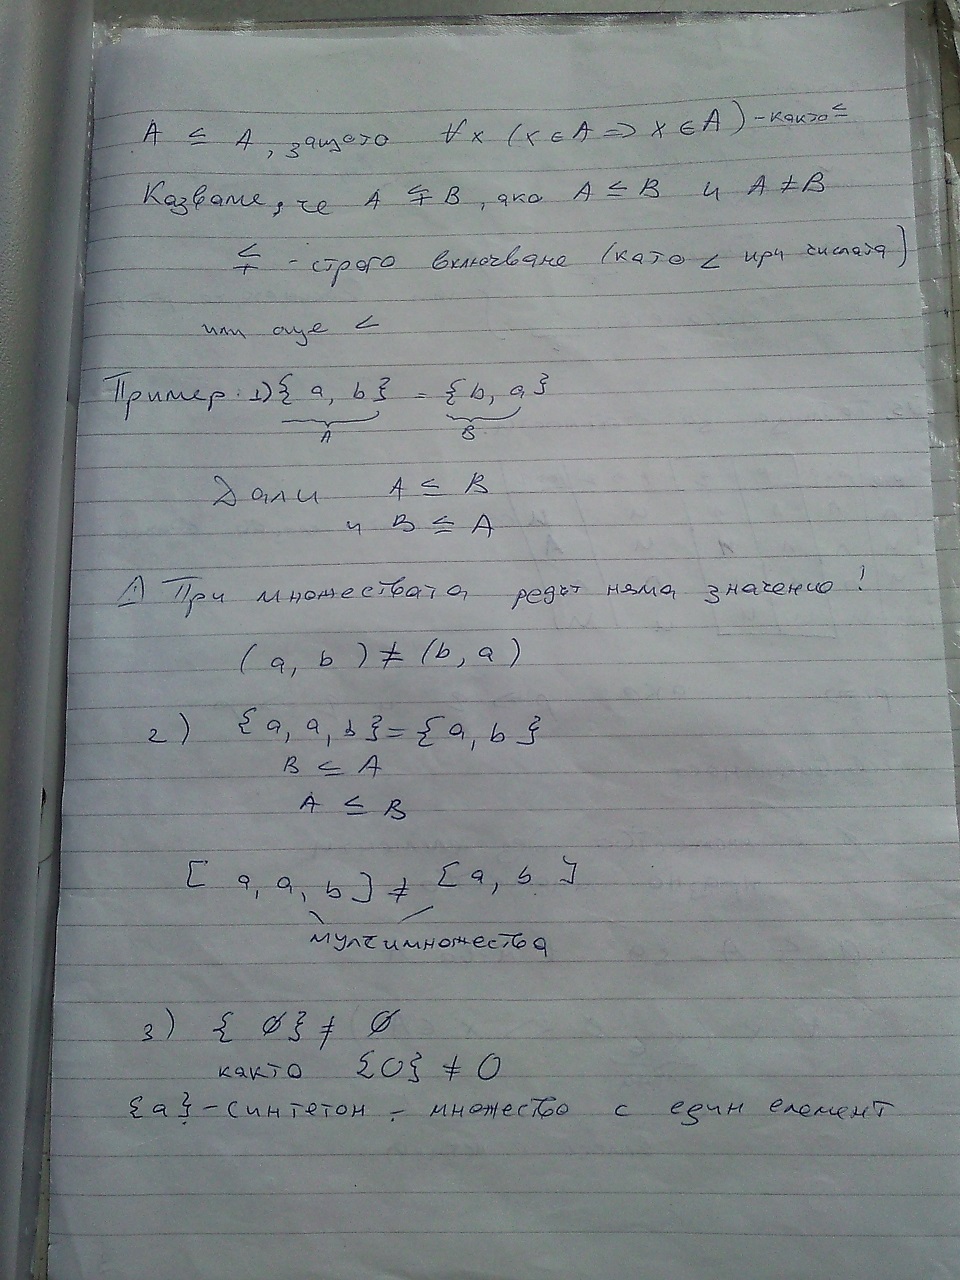 A ⊆ A, защото ∀x (x ∈ A => x ∈ A) - както ≤
Казваме, че A ⊊ B, ако A ⊆ B и A ≠ B
⊊ - строго включване (като < при числата)
или още ⊂
Пример: 1) { a, b } = { b, a }
A B
Дали A ⊆ B
и B ⊆ A
⚠ При множествата редът няма значение!
( a, b ) ≠ (b, a )
2) { a, a, b } = { a, b }
B ⊆ A
A ⊆ B
[ a, a, b ] ≠ [ a, b ]
мултимножества
3) { ∅ } ≠ ∅
както {0} ≠ 0
{a} - синглетон - множество с един елемент